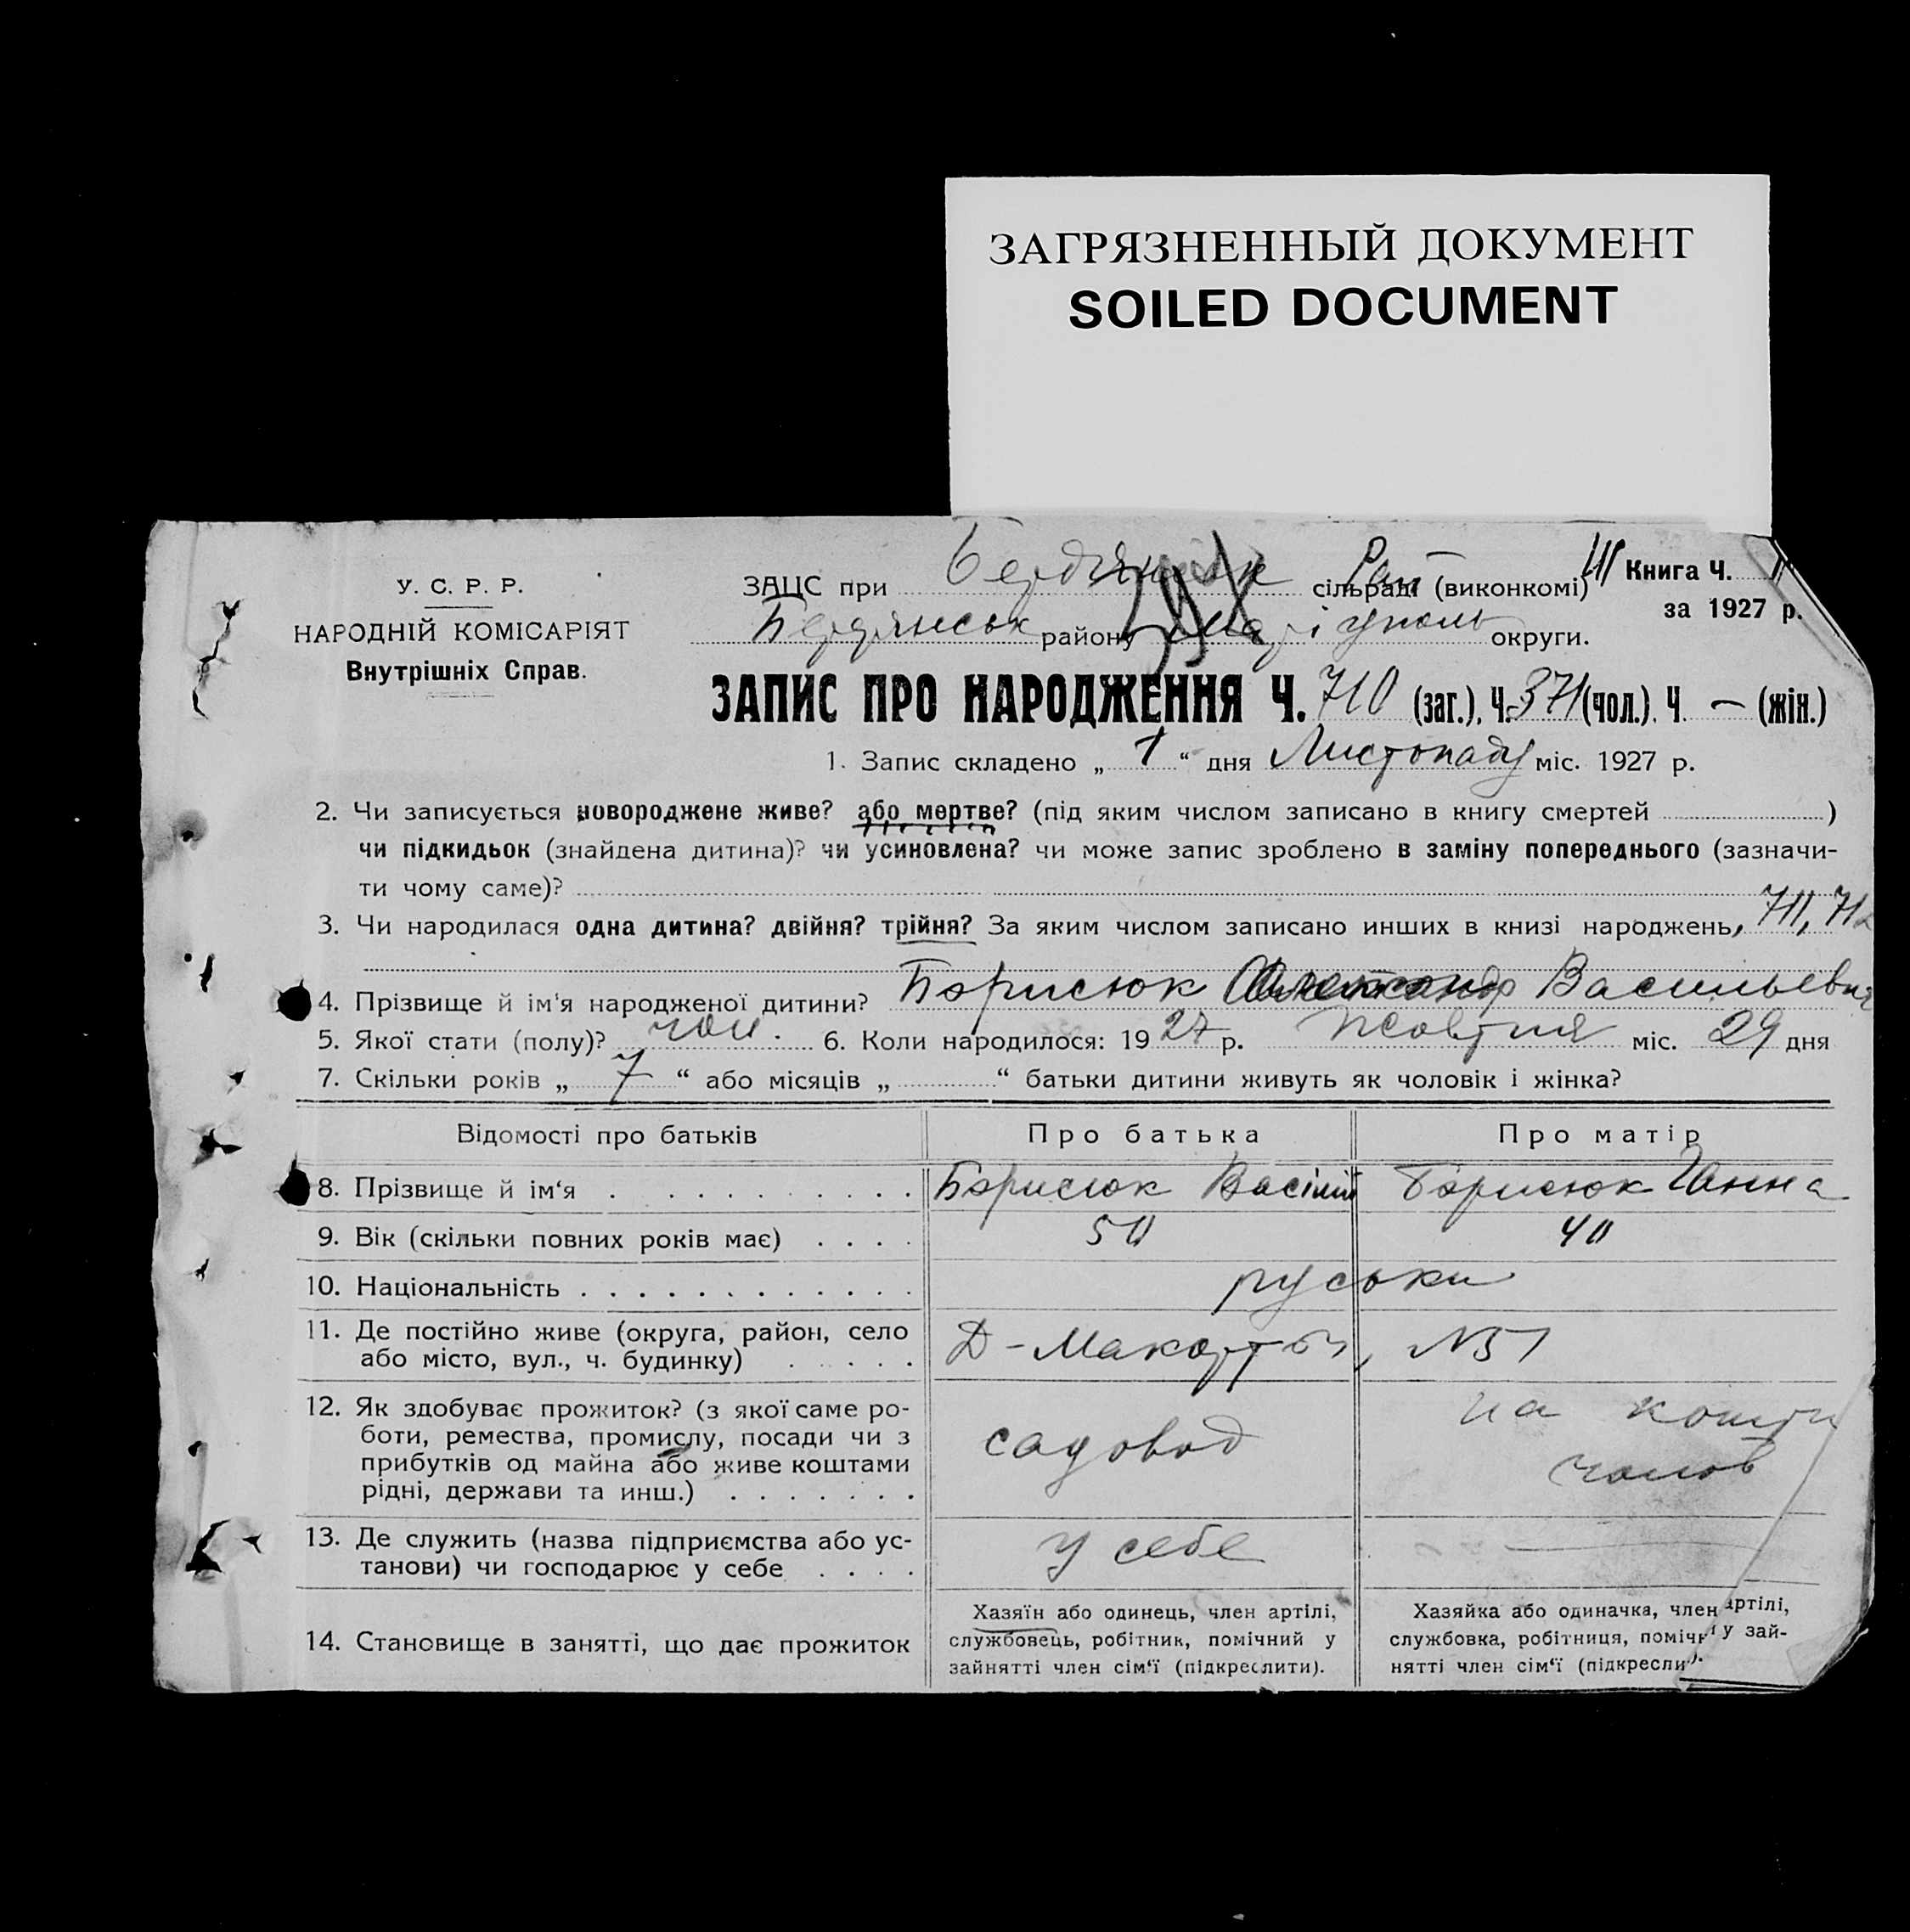 ЗАГРЯЗНЕННЫЙ ДОКУМЕНТ
SOILED DOCUMENT
У. С. Р. Р.
НАРОДНІЙ КОМІСАРІЯТ
Внутрішніх Справ.
ЗАЦС при Бердянськ Рай сільраді (виконкомі) Книга Ч. II
за 1927 р.
Бердянськ району Маріуполь округи.
ЗАПИС ПРО НАРОДЖЕННЯ Ч. 710 (заг.), Ч. 371 (чол.). Ч. — (жін.)
1. Запис складено „ 1 “ дня Листопаду міс. 1927 р.
2. Чи записується новороджене живе? або мертве? (під яким числом записано в книгу смертей )
чи підкидьок (знайдена дитина)? чи усиновлена? чи може запис зроблено в заміну попереднього (зазначи-
ти чому саме)?
3. Чи народилася одна дитина? двійня? трійня? За яким числом записано инших в книзі народжень, 711, 712
4. Прізвище й ім'я народженої дитини? Борисюк Олександр Васильевич
5. Якої стати (полу)? чол. 6. Коли народилося: 1927 р. Жовтня міс. 29 дня
7. Скільки років „ 7 “ або місяців „ “ батьки дитини живуть як чоловік і жінка?
Відомості про батьків Про батька Про матір
8. Прізвище й ім‘я Борисюк Васілій Борисюк Ганна
9. Вік (скільки повних років має) 50 40
10. Національність руськи
11. Де постійно живе (округа, район, село
або місто, вул., ч. будинку) Д-Макорты, №51
12. Як здобуває прожиток? (з якої саме ро-
боти, ремества, промислу, посади чи з
прибутків од майна або живе коштами
рідні, держави та инш.)
садовод
на кошти
чолов
13. Де служить (назва підприємства або ус-
танови) чи господарює у себе
у себе —
14. Становище в занятті, що дає прожиток
Хазяїн або одинець, член артілі,
службовець, робітник, помічний у
зайнятті член сім‘ї (підкреслити).
Хазяйка або одиначка, член артілі,
службовка, робітниця, помічн у зай-
нятті член сім‘ї (підкресли ).